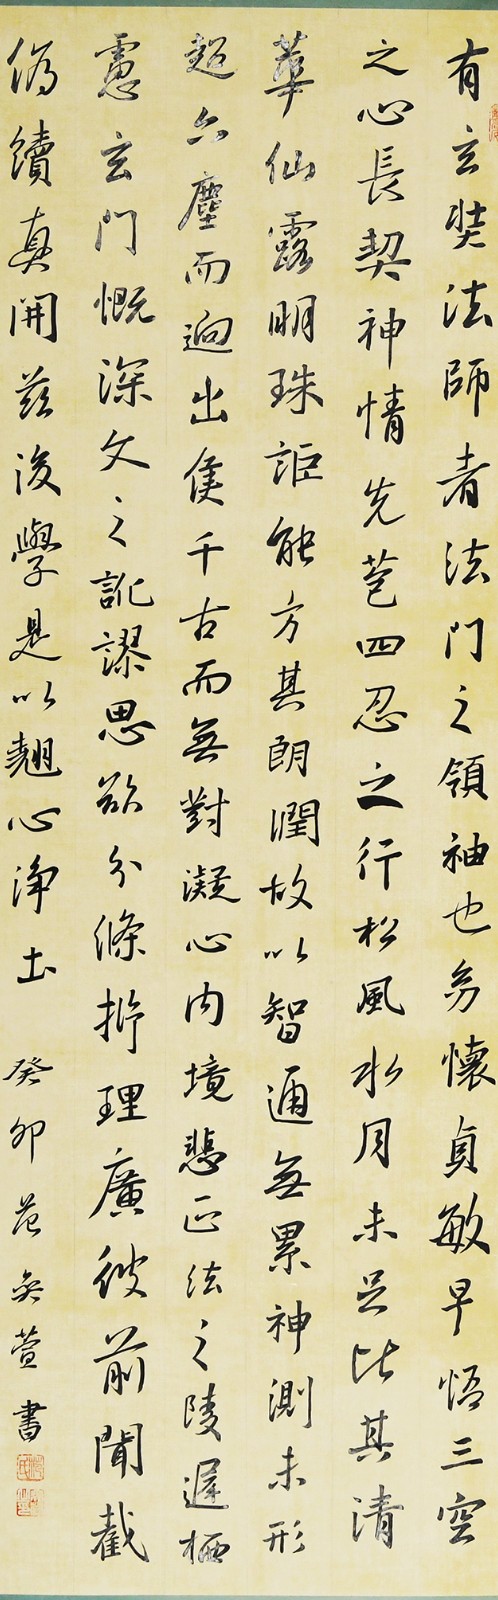 有玄奘法師者法門之領袖也幼懷貞敏早悟三空
之心長契神情先苞四忍之行松風水月未足比其清
華仙露明珠詎能方其朗潤故以智通無累神測未形
超六塵而迥出隻千古而無對凝心內境悲正法之陵遲栖
慮玄門慨深文之訛謬思欲分條析理廣彼前聞截
偽續真開茲後學是以翹心淨土 癸卯范萱書